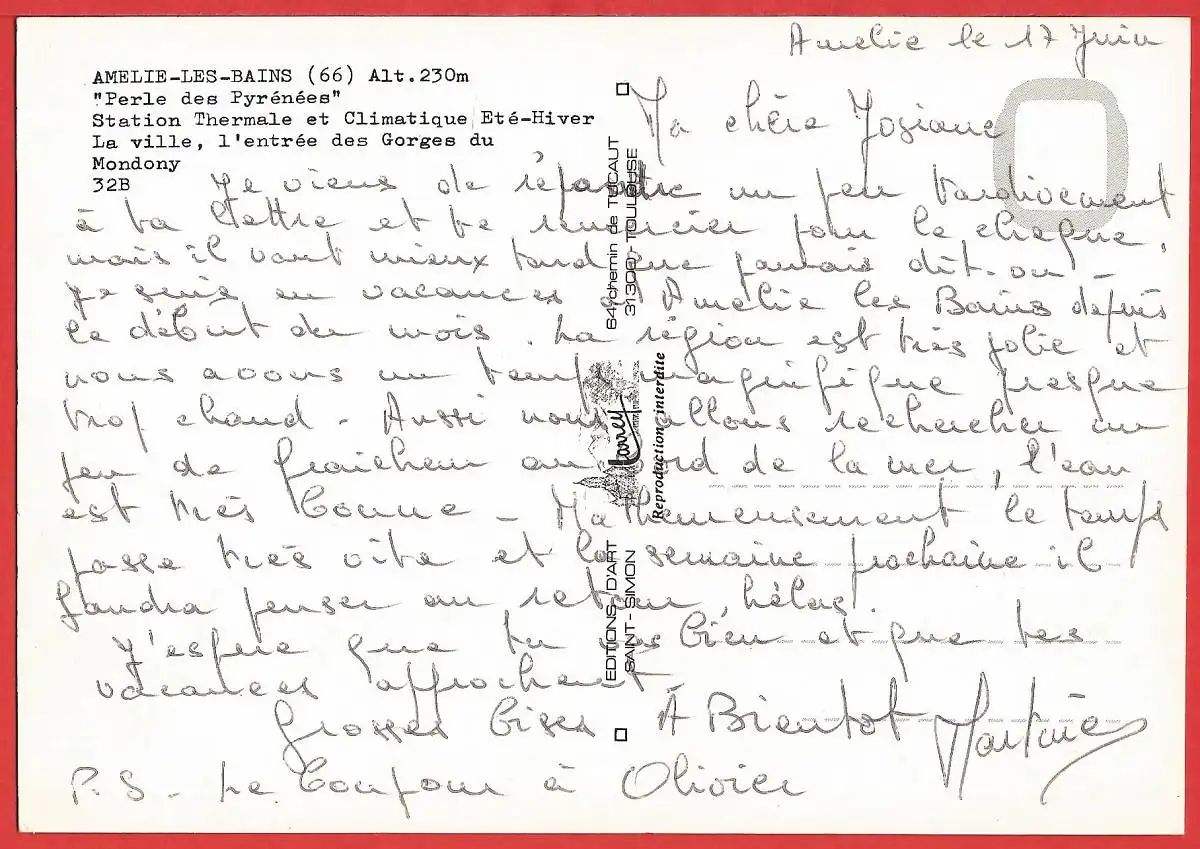 Amelie le 17 Juin
AMELIE-LES-BAINS (66) Alt.230m
"Perle des Pyrénées"
Station Thermale et Climatique Eté-Hiver
La ville, l'entrée des Gorges du
Mondony
32B
Ma chère Josiane
Je viens de répondre un peu tardivement
à ta lettre et te remercier pour le chèque,
mais il vaut mieux tard que jamais dit-on -
Je suis en vacances à Amélie les Bains depuis
le début du mois. La région est très jolie et
nous avons un temps magnifique presque
trop chaud - Aussi nous allons rechercher un
peu de fraicheur au bord de la mer, l'eau
est très bonne - Malheureusement le temps
passe très vite et la semaine prochaine il
faudra penser au retour, hélas.
J'espère que tu vas bien et que tes
vacances approchent
Grosses bises À Bientot Martine
P.S - Le bonjour à Olivier
EDITIONS D'ART
SAINT-SIMON
Larrey
Reproduction interdite
64, chemin de TUCAUT
31300 - TOULOUSE